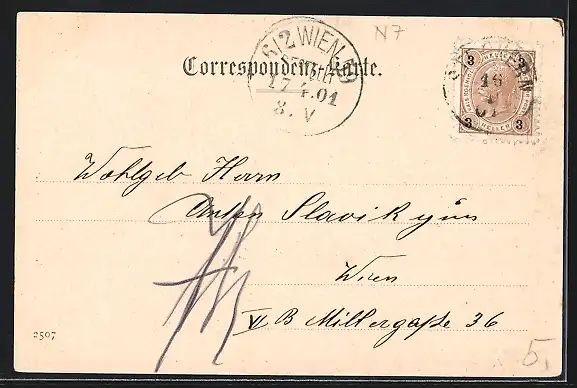 N7
6/2 WIEN
17.4.01
8. V
Correspondenz-Karte.
3 3
16
4
01
3 HELLER 3
Wohlgeb Herrn
Anton Slavik jun
Wien
VI B Millergaße 36
2507
5.